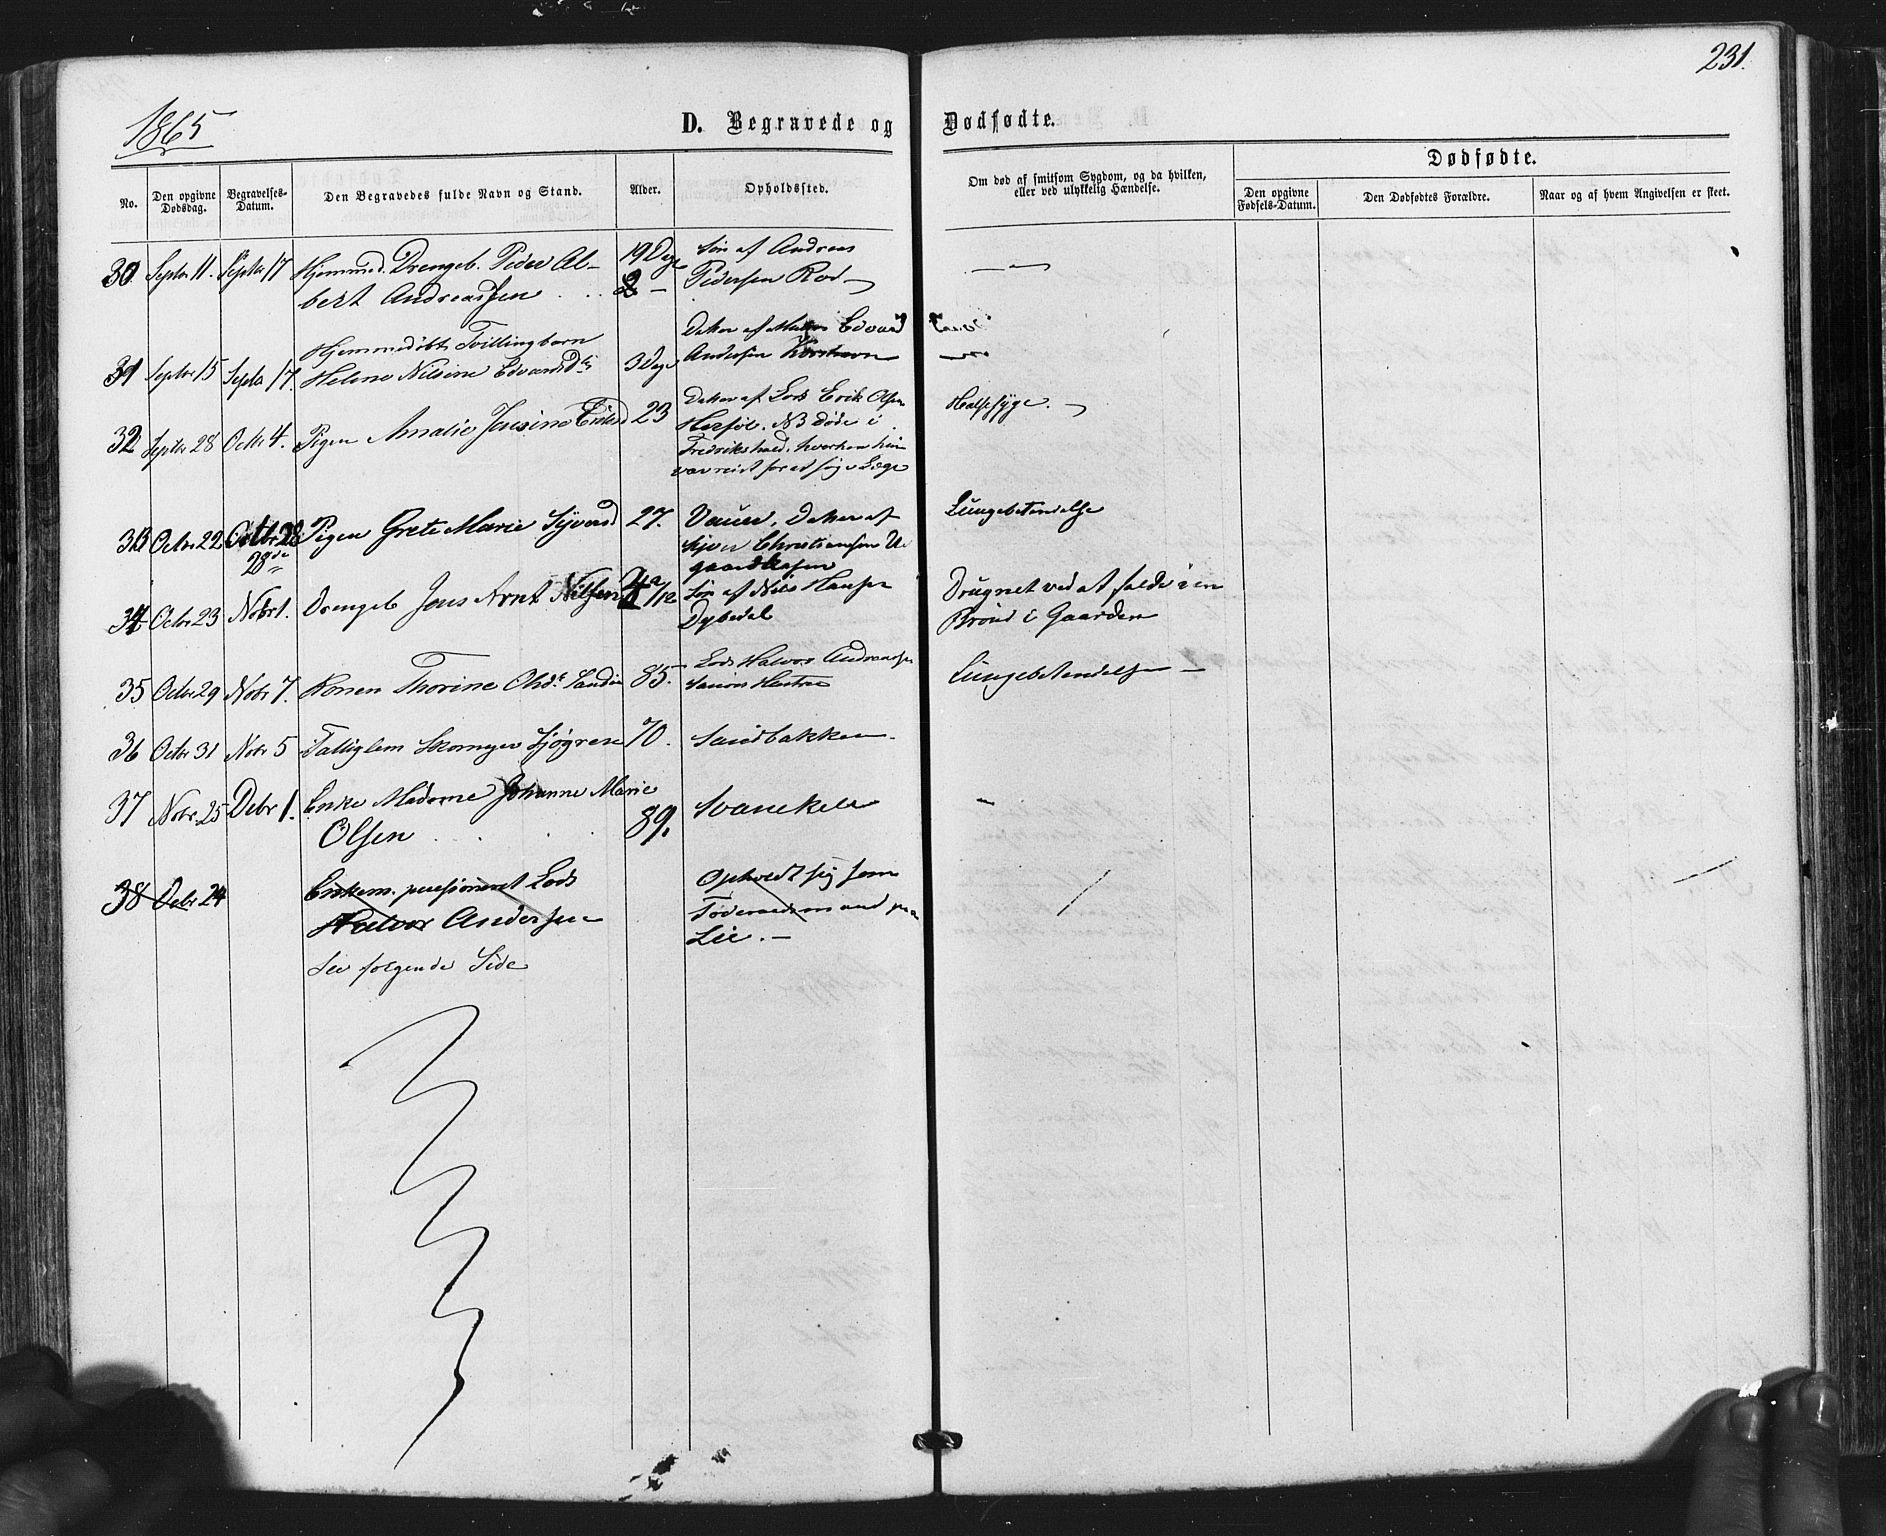 231.
1865
D. Begravede og Dødfødte.
Dødfødte.
No.
Den opgivne Dødsdag.
Begravelses-Datum.
Den Begravedes fulde Navn og Stand.
Alder.
Opholdssted.
Om død af smitsom Sygdom, og da hvilken,
eller ved ulykkelig Hændelse.
Den opgivne Fødsels-Datum.
Den Dødfødtes Forældre.
Naar og af hvem Angivelsen er skeet.
30 Septbr 11. Septbr 17 Hjemmed. Drengeb. Peder Al- 19 Dage Søn af Andreas
bert Andreassen Pedersen Rød
Hjemmedøbt Tvillingbarn Datter af Edvard
31 Septbr 15 Septbr 17. Helene Nilsine Edvardsdtr 3 Dage Andersen
Datter af Lods Erik Olsen
32 Septbr 28 Octbr 4. Pigen Amalie 23 Herføl. NB døde i Halssyge.
Fredrikshald, hvorhen hun
var reist for at søge Læge
33 Octbr 22 Octbr 28 Pigen Grete Marie Syversd 27. Vauer, Datter af Lungebetændelse
28de Christiansen
34 Octbr 23 Novbr 1. Drengeb Jens Arnt Nilsen /12 Søn af Nils Hansen Drugnet ved at falde i en
Dybedal Brønd i Gaarden
35 Octbr 29 Novbr 7. Konen Thorine 85. Lods Halvor Andreassen Lungebetændelse
36 Octbr 31 Novbr 5 Fattiglem Skomager Sjøgren 70. Sandbakken.
37 Novbr. 25 Debr 1. Enke Madame Johanne Marie Svanekil
Olsen 89.
38 Octbr 24 Enkem. pensioneret Lods Opholdt sig som
Halvor Andersen Føderaadsmand paa
Lie.
See følgende Side